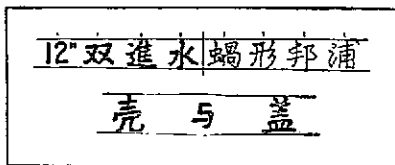 12"双進水蝸形邦浦
壳与蓋